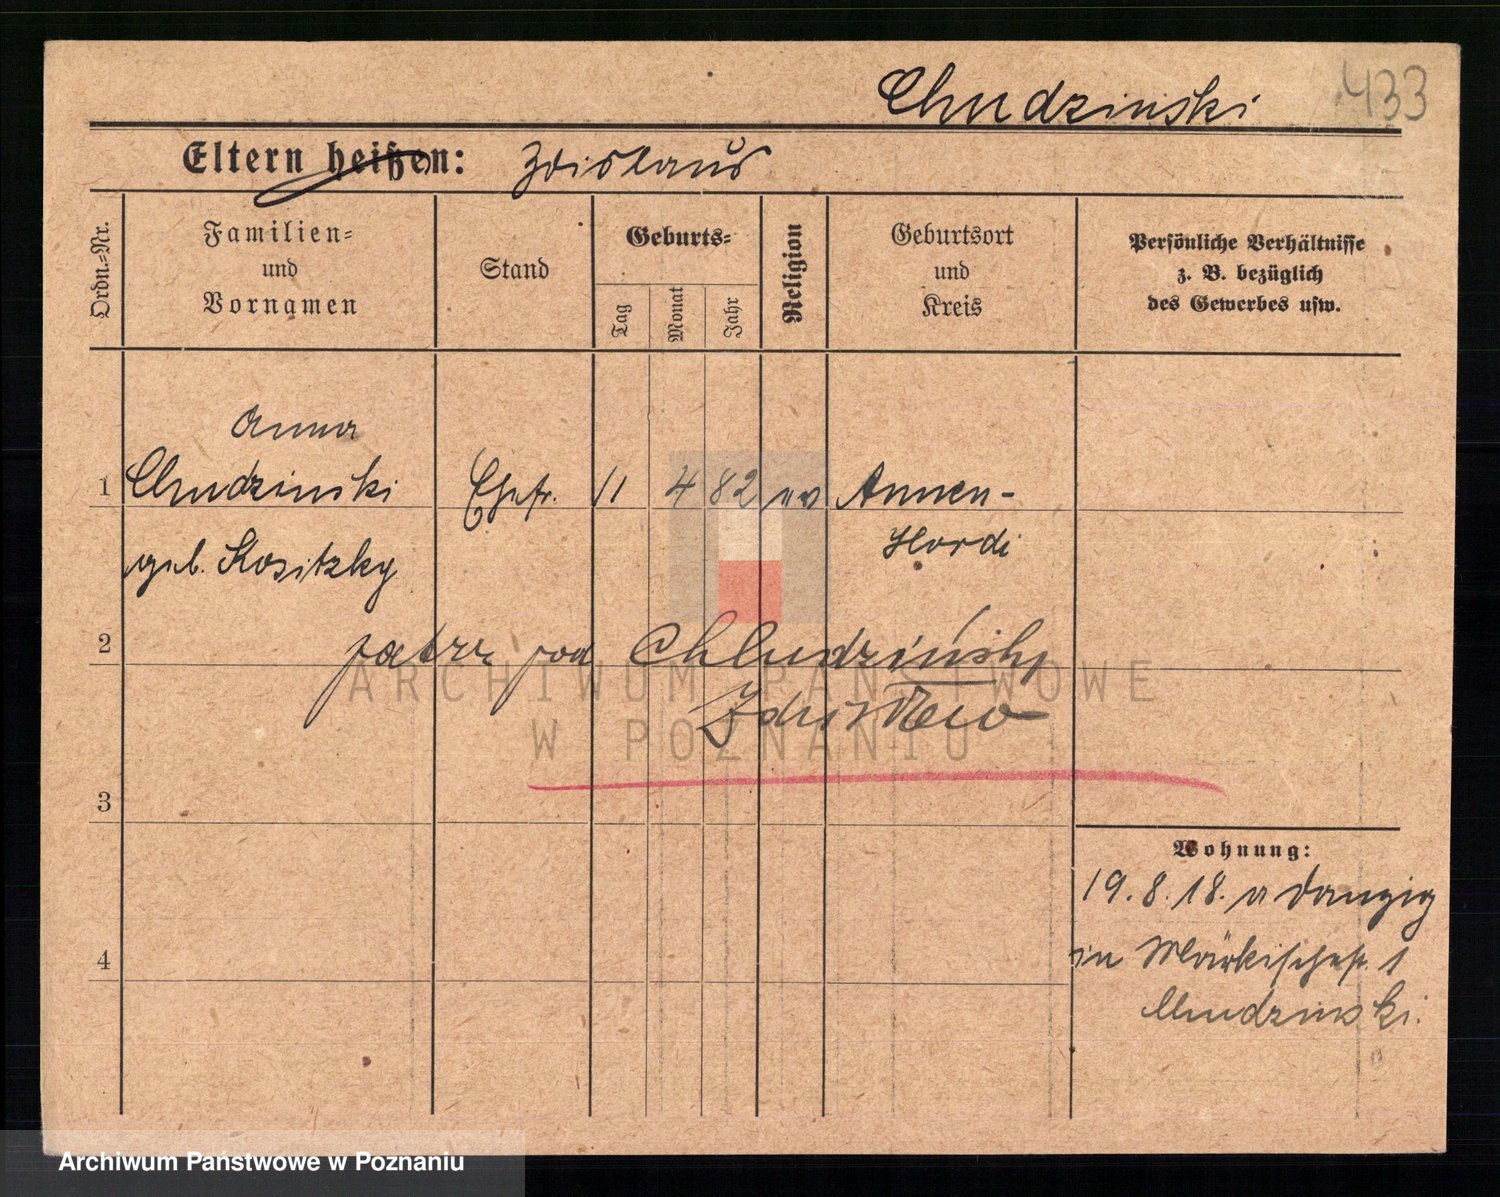 Chudzinski 433
Eltern heißen: Zdislaus
Ordn.-Nr.
Familien-
und
Vornamen
Stand
Geburts-
Tag
Monat
Jahr
Religion
Geburtsort
und
Kreis
Persönliche Verhältnisse
z. B. bezüglich
des Gewerbes usw.
Anna
1 Chudzinski Ehefr. 11 4 82 ev Annen-
geb. Kositzky
2 patrz pod Chłudziński
Zdzisław
3
4
Wohnung:
19. 8. 18. v Danzig
in Märkischestr. 1
Chudzinski.
ARCHIWUM PAŃSTWOWE
W POZNANIU
Archiwum Państwowe w Poznaniu